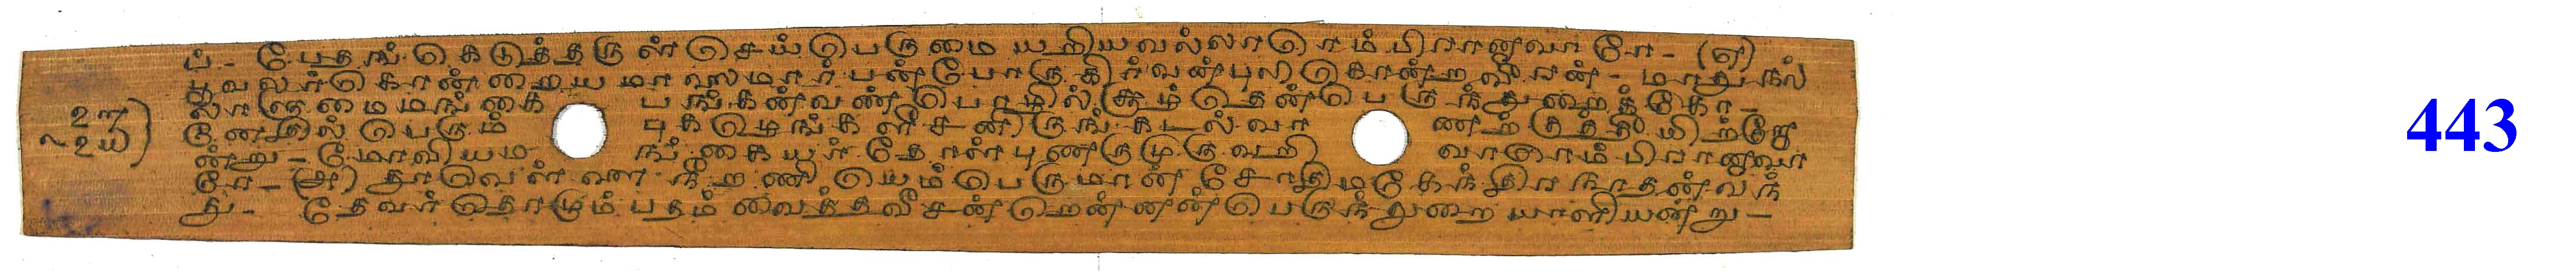 ப்- பேதங் கெடுத்தருள் செய் பெருமை யறியவல்லா ரெம்பிரானாவாரே- (எ)
பூவலர் கொன்றைய மாலைமார்பன் போருகிர்வன்புலி கொன்றவீரன்- மாதுநல்
லாளுமைமங்கை பங்கன்வண்பொழில்சூழ் தென்பெருந்துறைக்கோ-
னேதில்பெரும்புகழெங்களீசனிருங்கடல்வாணற்குத்தீயிற்றோ
ன்று- மோவியமங்கையர்தோள்புணருமுருவறிவாரெம்பிரானாவா
ரே- (அ) தூவெள்ளைநீறணியெம்பெருமான் சோதிமகேந்திரநாதன்வந்
து- தேவர்தொழும்பதம் வைத்தவீசன் தென்னன்பெருந்துறையாளியன்று-
443